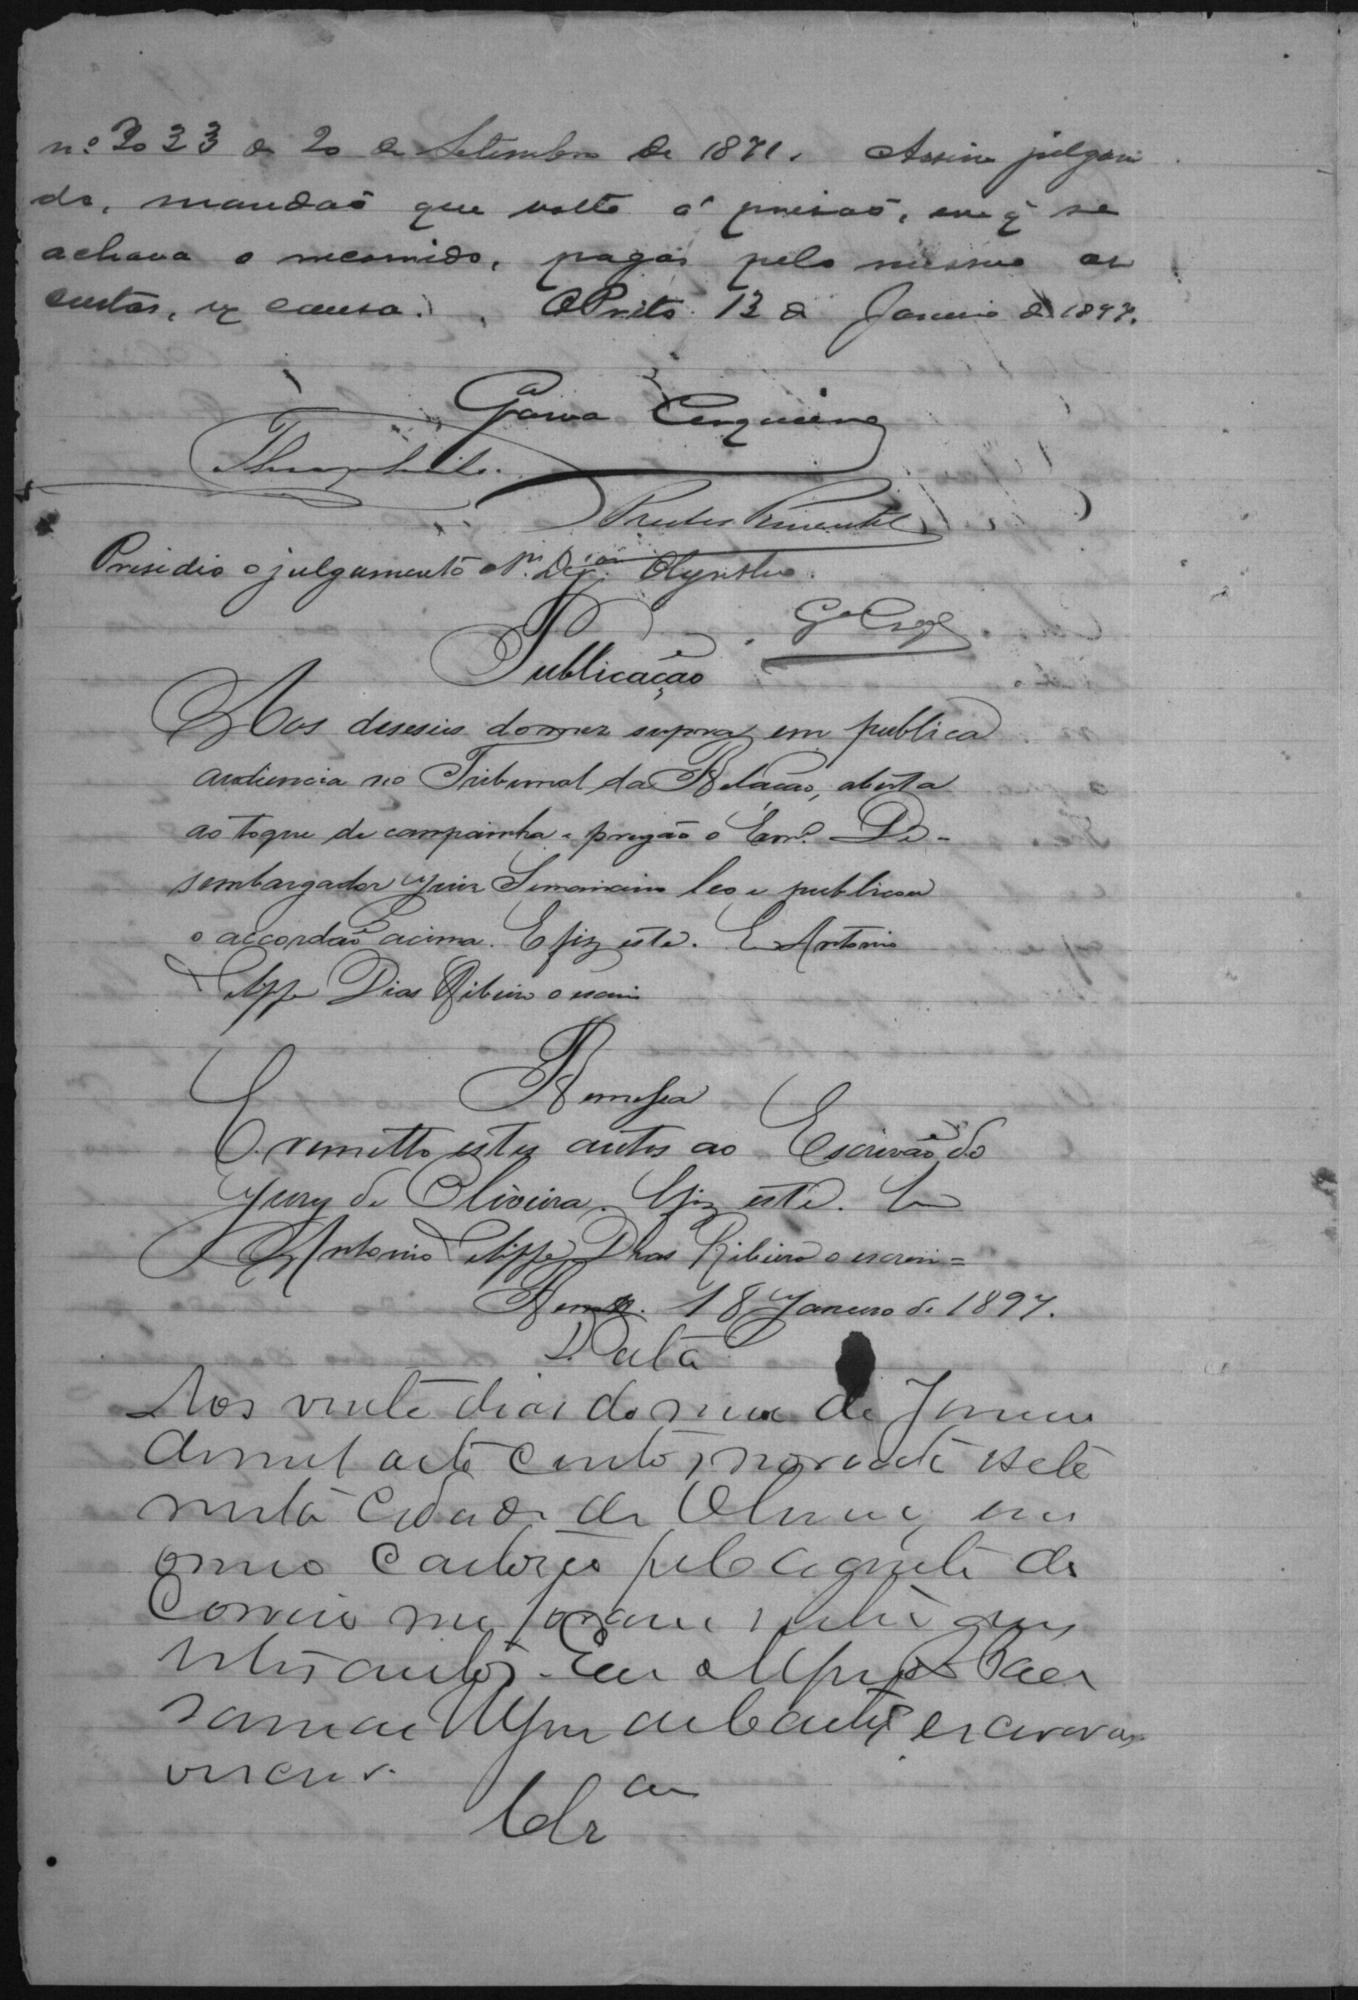 nº 2033 de 20 de Setembro de 1871. Assim julgan
do, mandaõ que volte á prisaõ, em q̃ se
achava o recorrido, pagas pelo mesmo as
custas, ex causa. OPreto. 13 de Janeiro de 1897.
Gama Cerqueira
Theophilo.
Prestes Pimentel
Presidio o julgamento o Sr. Dez.or
Publicação
Aos deseseis do mez supra, em publica
audiencia no Tribunal da Relação, aberta
ao toque de campainha e pregão o Exmº. De-
sembargador Juiz Semanario leo e publicou
o accordaõ acima. E fiz este. Eu Antonio
Felippe Dias Ribeiro o escrivi
Remessa
E remetto estes autos ao Escrivão do
Jury de Oliveira. E fiz este. Eu
Antonio Felippe Dias Ribeiro o escrevi=
Remdos. 18 Janeiro de 1897.
Data
Aos vinte dias do mez de Janeiro
de mil oito centos e noventa e sete
nesta Cidade de Oliveira, em
o meu Cartorio pelo agente do
Correio me foram entregues
estes autos. Eu
escrivão
o escrevi.
Clsam